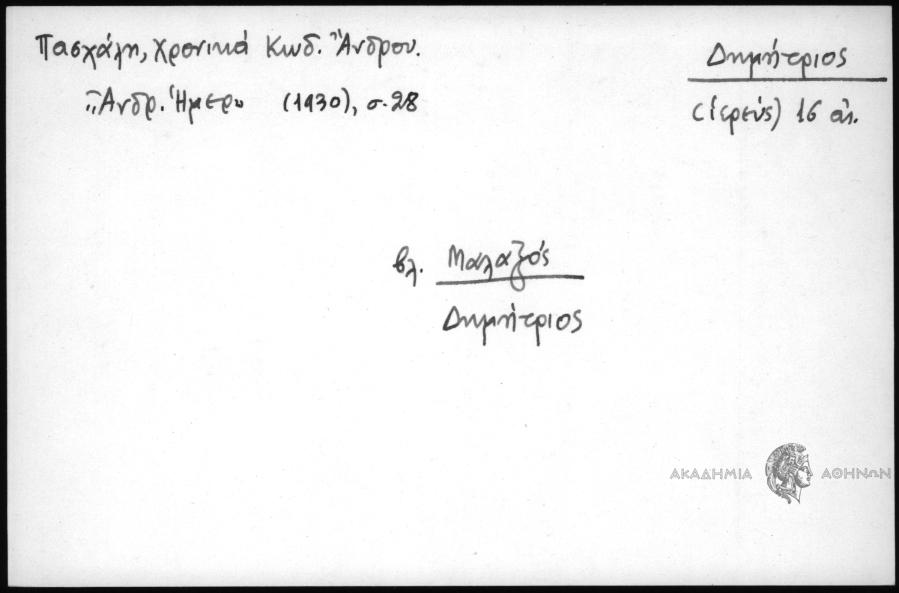 Πασχάλη, Χρονικά Κωδ. Ἄνδρου.
Ἄνδρ. Ἡμερο (1930), σ. 28
Δημήτριος
(ἱερεύς) 16 αἰ.
βλ. Μαλαξός
Δημήτριος
ΑΚΑΔΗΜΙΑ ΑΘΗΝΩΝ